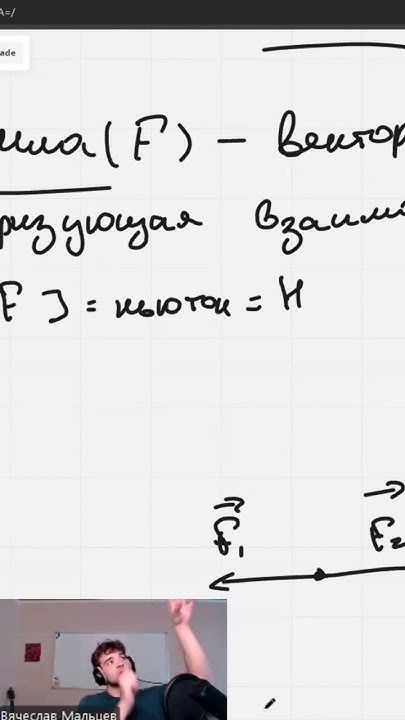 A=/
ade
ила (F) – вектор
ризующая взаимо
F ] = ньютон = Н
F₁ F₂
Вячеслав Мальцев